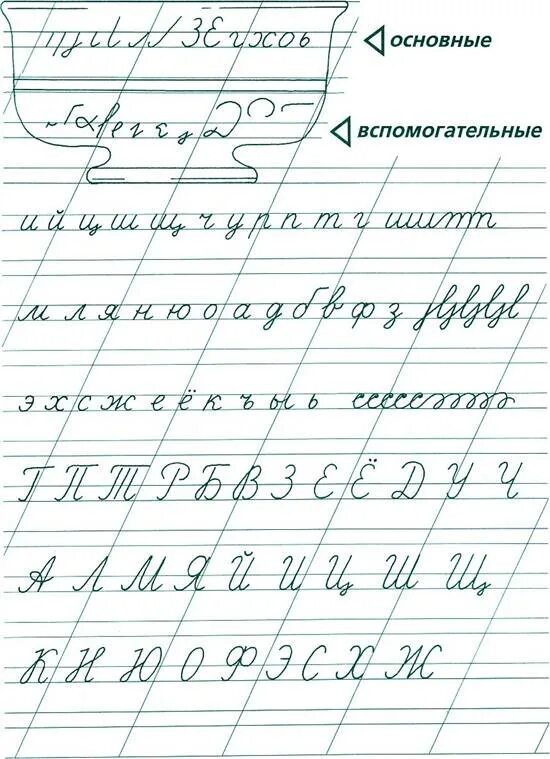 основные
вспомогательные
и й ц ш щ ч у р п т г
м л я н ю о а д б в ф з
э х с ж е ё к ъ ы ь
Г П Т Р Б В З Е Ё Д У Ч
А Л М Я Й И Ц Ш Щ
К Н Ю О Ф Э С Х Ж